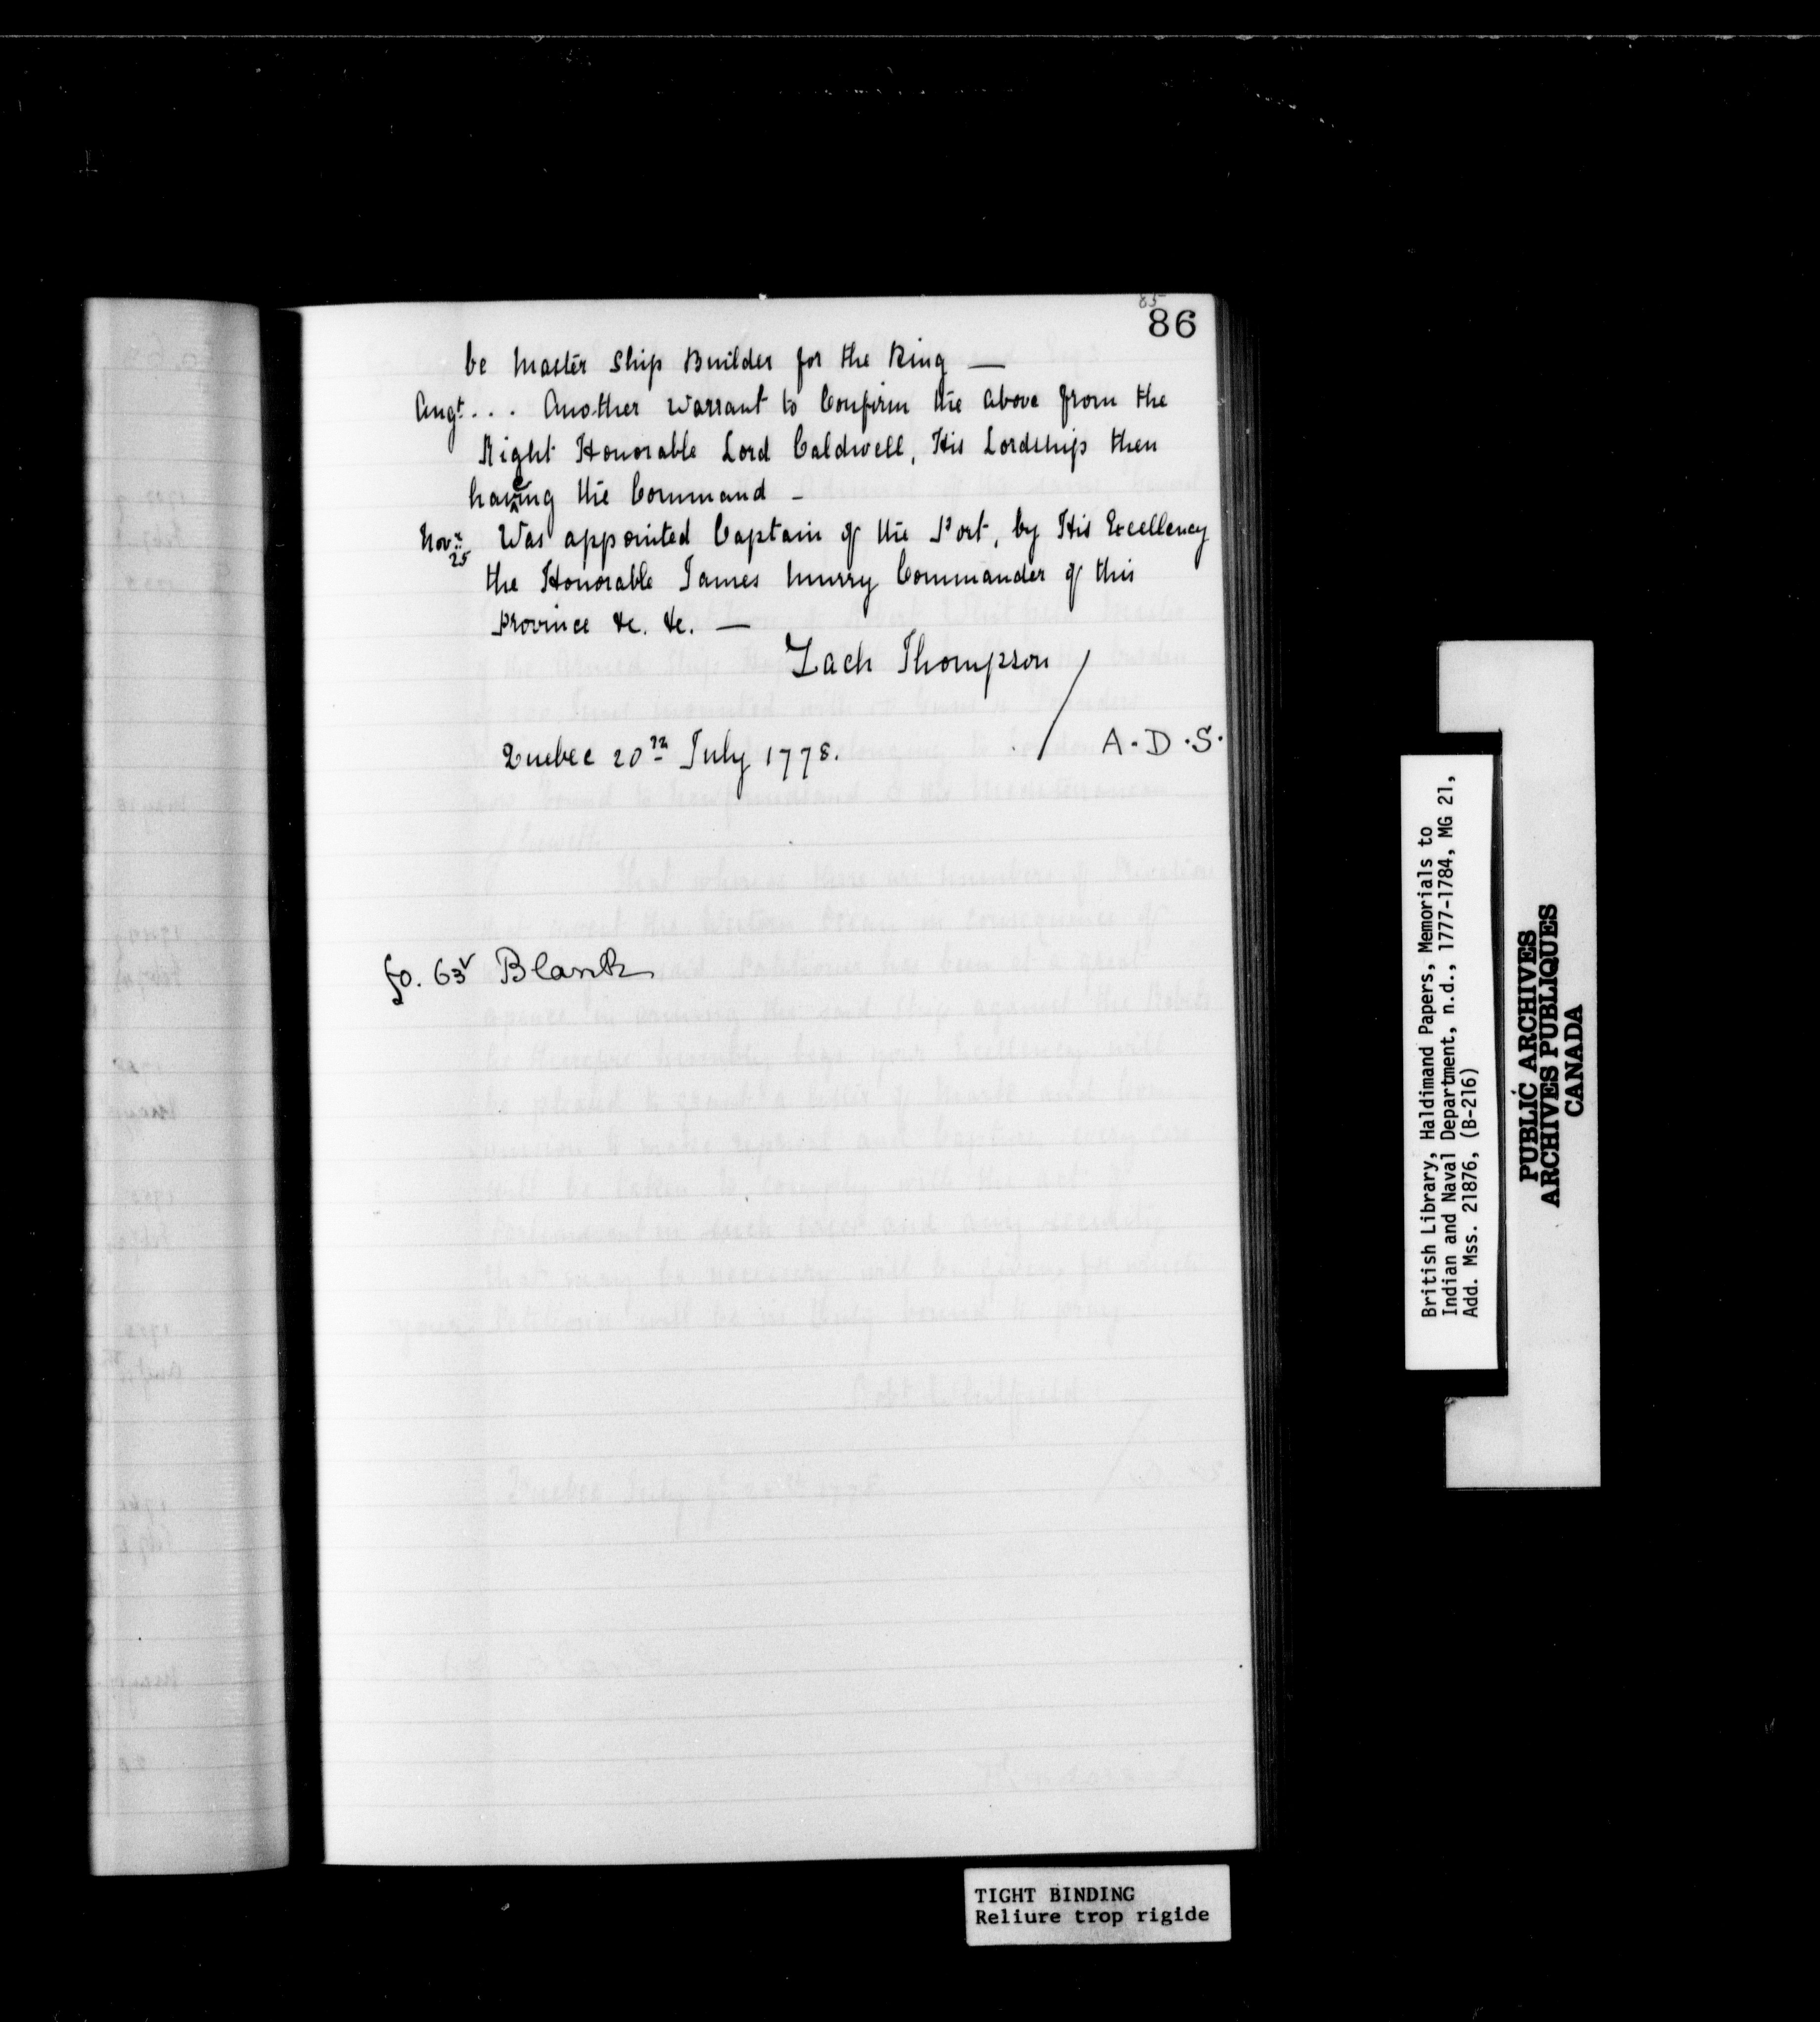 85
86
be Master Ship Builder for the King —
Augt. . . Another Warrant to Confirm the above from the
Right Honorable Lord Caldwell, His Lordship then
having the Command –
Novr. 25 Was appointed Captain of the Port, by His Excellency
the Honorable James Murry Commander of this
Province &c. &c. —
Zach Thompson /
Quebec 20th July 1778.
A. D. S.
fo. 63v Blank
British Library, Haldimand Papers, Memorials to
Indian and Naval Department, n.d., 1777-1784, MG 21,
Add. Mss. 21876, (B-216)
PUBLIC ARCHIVES
ARCHIVES PUBLIQUES
CANADA
TIGHT BINDING
Reliure trop rigide